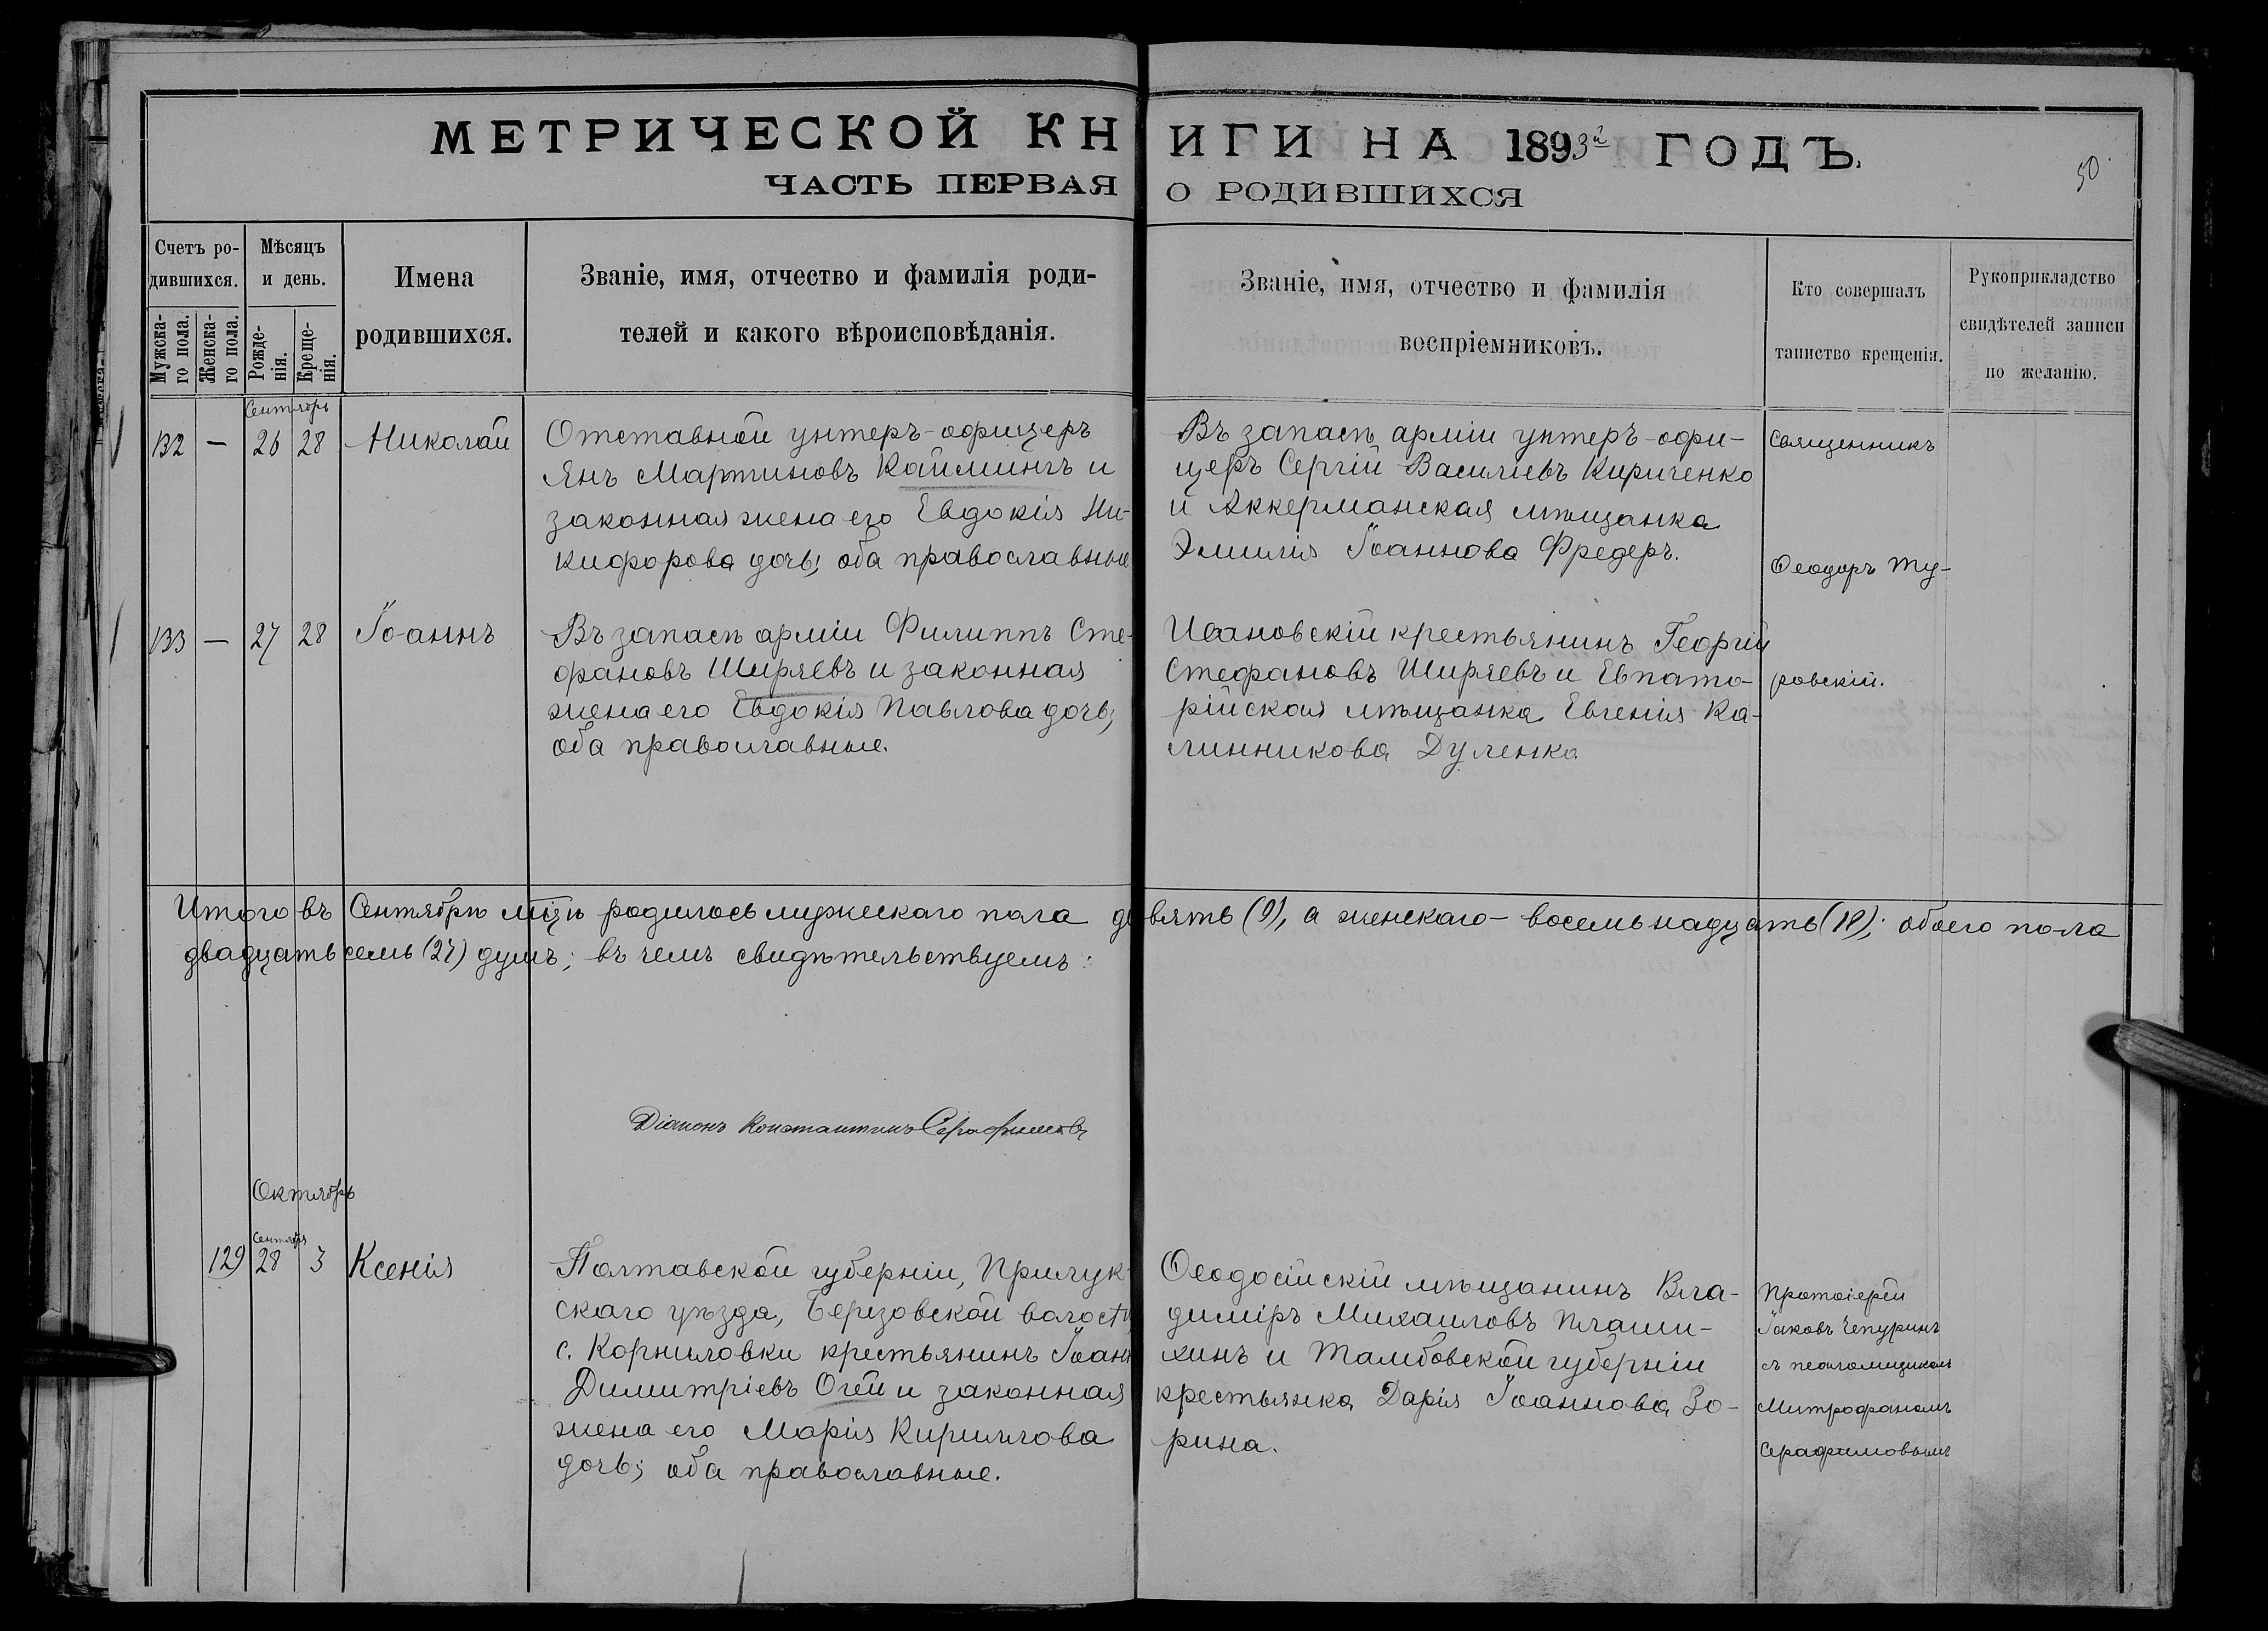 МЕТРИЧЕСКОЙ КНИГИ НА 1893й ГОДЪ.
ЧАСТЬ ПЕРВАЯ О РОДИВШИХСЯ
50
Счетъ ро-
дившихся.
Мужска-
го пола.
Женска-
го пола.
Мѣсяцъ
и день.
Рожде-
нія.
Креще-
нія.
Имена
родившихся.
Званіе, имя, отчество и фамилія роди-
телей и какого вѣроисповѣданія.
Званіе, имя, отчество и фамилія
воспріемниковъ.
Кто совершалъ
таинство крещенія.
Рукоприкладство
свидѣтелей записи
по желанію.
Сентябрь
132 — 26 28 Николай
Отставной унтеръ-офицеръ
Янъ Мартиновъ Кайминъ и
законная жена его Евдокія Ни-
кифорова дочь; оба православные
Въ запасѣ арміи унтеръ-офи-
церъ Сергій Василіевъ Кириченко
и Аккерманская мѣщанка
Эмилія Іоаннова Фредеръ.
Священникъ
Ѳеодоръ Ту-
ровскій.
133 — 27 28 Іоаннъ
Въ запасѣ арміи Филиппъ Сте-
фановъ Ширяевъ и законная
жена его Евдокія Павлова дочь;
оба православные.
Ивановскій крестьянинъ Георгій
Стефановъ Ширяевъ и Евпато-
рійская мѣщанка Евгенія Ка-
линникова Дуленко
Итого въ Сентябрѣ м-цѣ родилось мужескаго пола девять (9), а женскаго — восемьнадцать (18); обоего пола
двадцать семь (27) душъ; въ чемъ свидѣтельствуемъ:
Діаконъ Константинъ Серафимовъ
Октябрь
Сентября
129 28 3 Ксенія
Полтавской губерніи, Прилук-
скаго уѣзда, Березовской волости
с. Корниловки крестьянинъ Іоаннъ
Димитріевъ Огій и законная
жена его Марія Кириллова
дочь; оба православные.
Ѳеодосійскій мѣщанинъ Вла-
диміръ Михаиловъ Плаши-
хинъ и Тамбовской губерніи
крестьянка Дарія Іоаннова Зо-
рина.
Протоіерей
Іаковъ Чепуринъ
съ псаломщикомъ
Митрофаномъ
Серафимовымъ